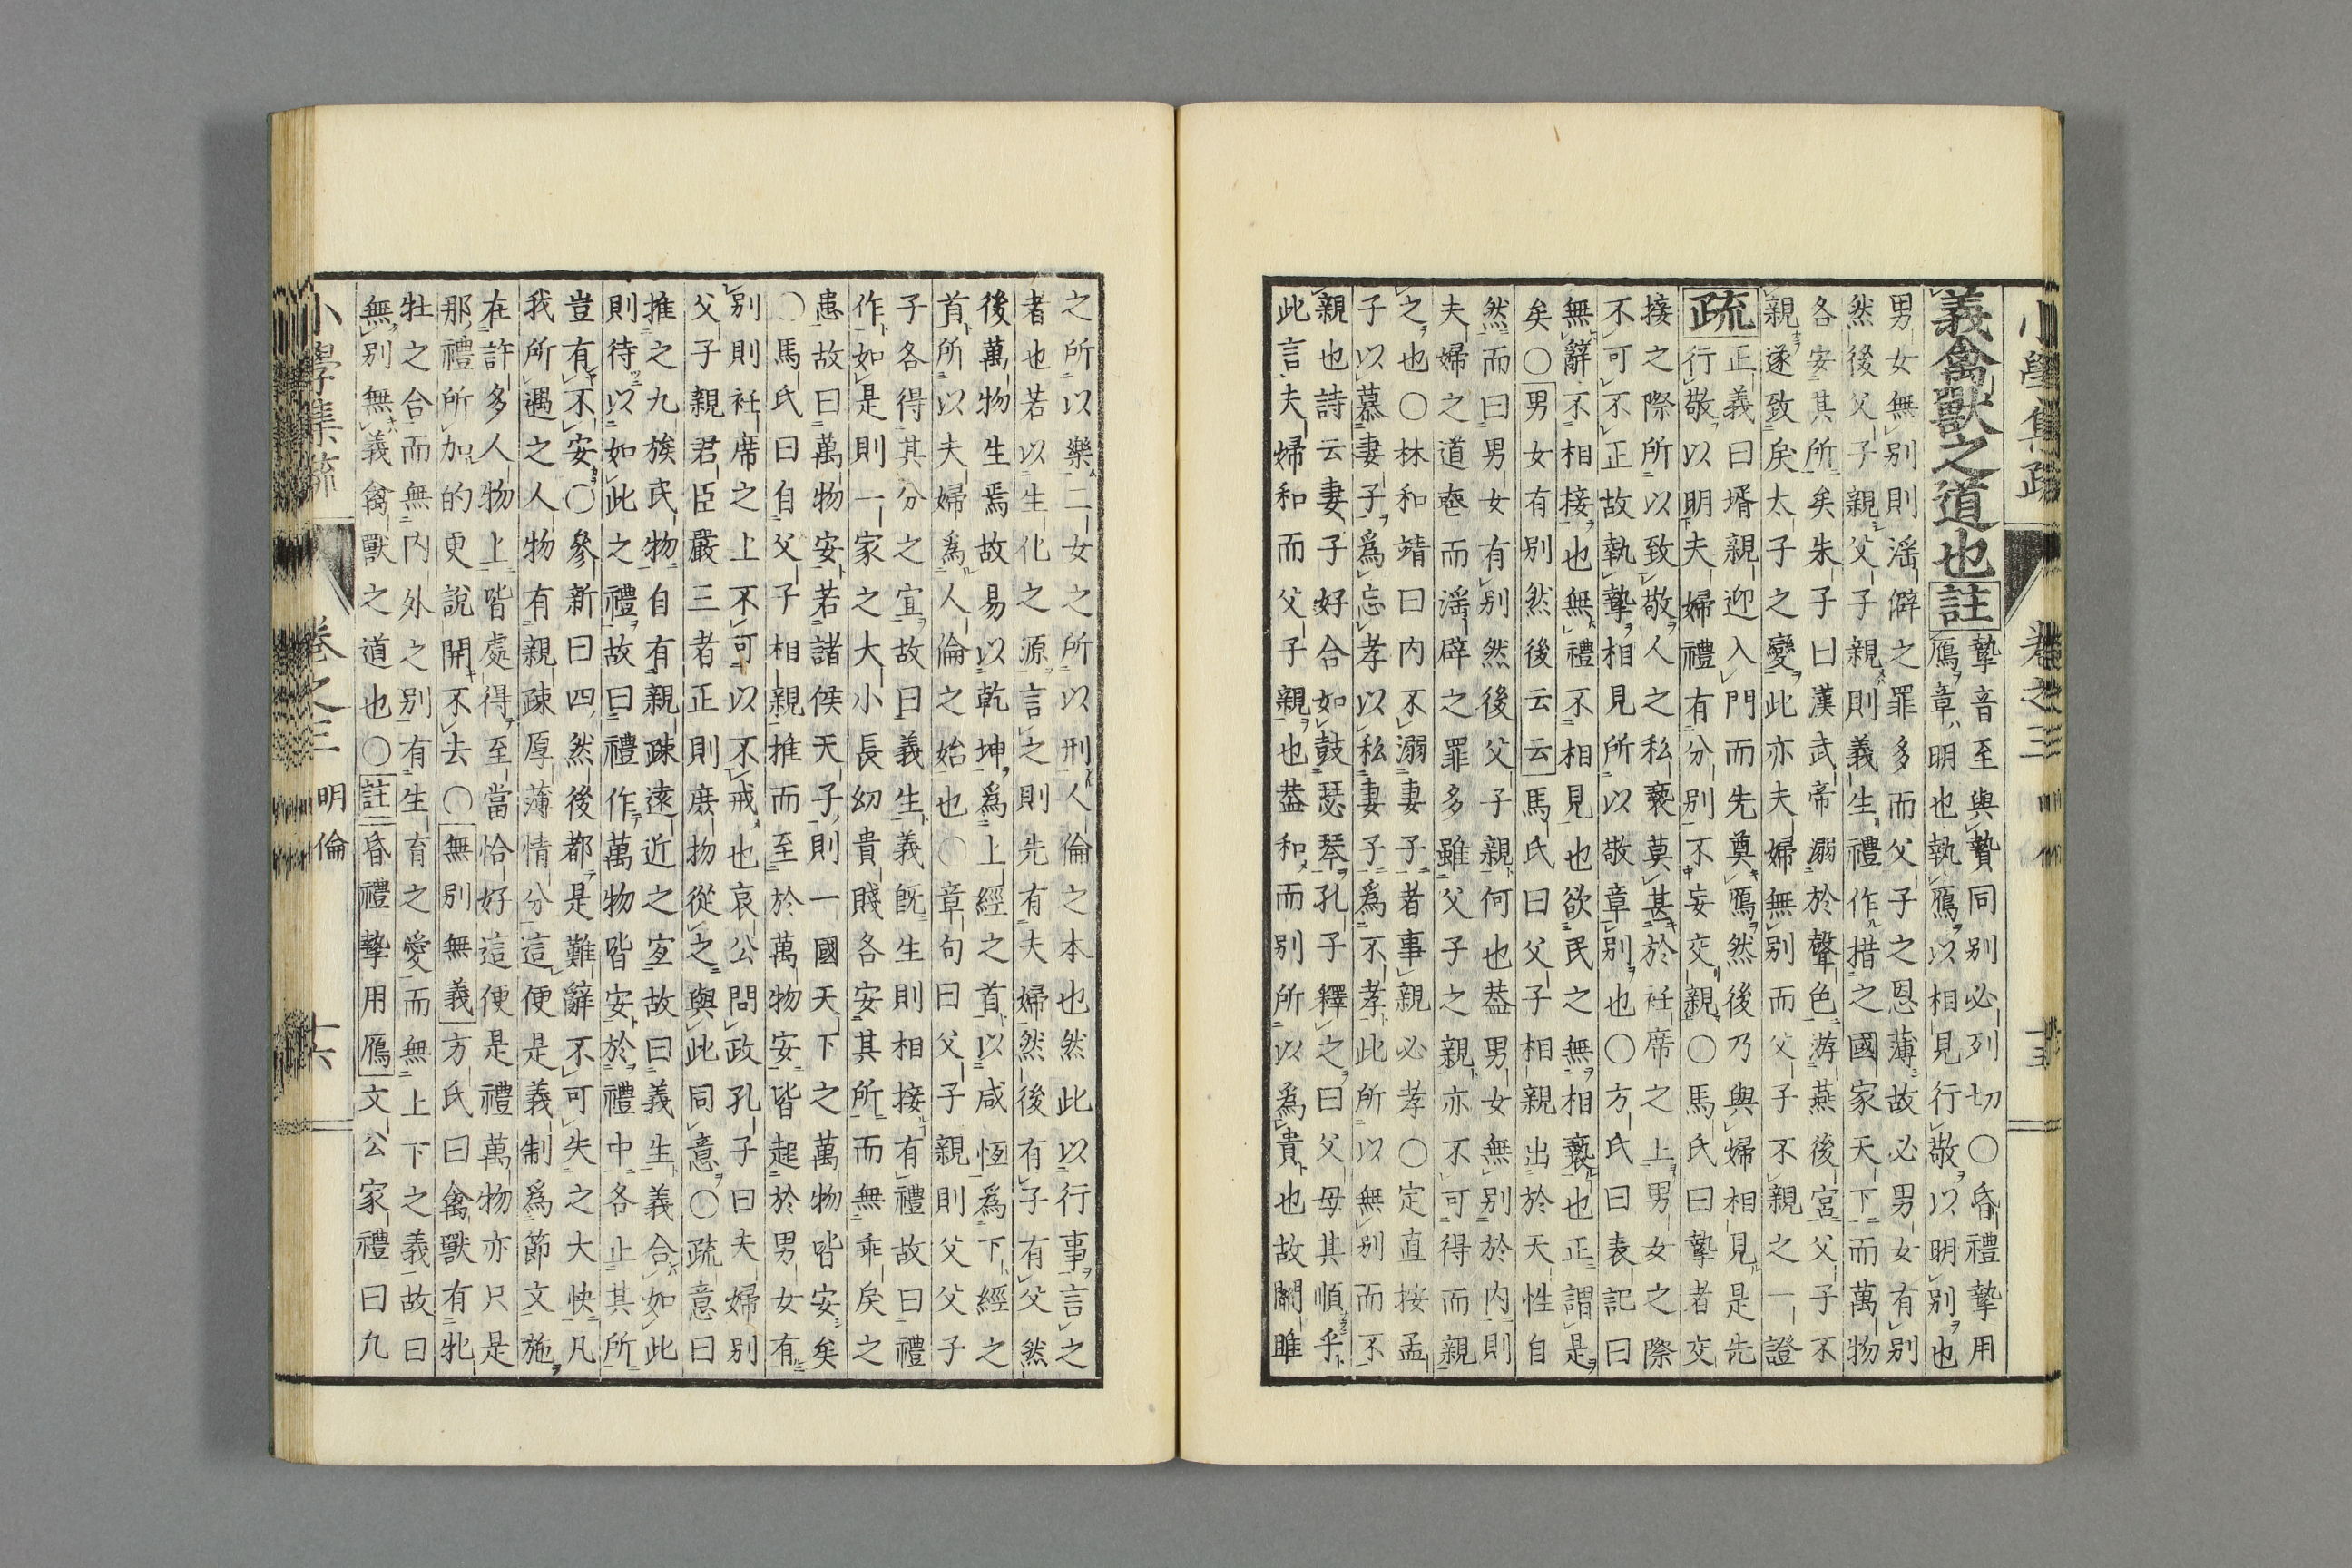 小學集疏 卷之三 十五
義禽獸之道也註
摯音至與贄同別必列切〇昏禮摯用
鴈章明也執鴈以相見行敬以明別也
男女無別則滛僻之罪多而父子之恩薄故必男女有別
然後父子親父子親則義生禮作措之國家天下而萬物
各安其所矣朱子曰漢武帝溺於聲色游燕後宮父子不
親遂致戾太子之變此亦夫婦無別而父子不親之一證
疏正義曰壻親迎入門而先奠鴈然後乃與婦相見是先
行敬以明夫婦禮有分別不妄交親〇馬氏曰摯者交
接之際所以致敬人之私褻莫甚於衽席之上男女之際
不可不正故執摯相見所以敬章別也〇方氏曰表記曰
無辭不相接也無禮不相見也欲民之無相褻也正謂是
矣〇男女有別然後云云馬氏曰父子相親出於天性自
然而曰男女有別然後父子親何也葢男女無別於內則
夫婦之道䘮而滛辟之罪多雖父子之親亦不可得而親
之也〇林和靖曰内不溺妻子者事親必孝〇定直按孟
子以慕妻子爲忘孝以私妻子爲不孝此所以無別而不
親也詩云妻子好合如鼓瑟琴孔子釋之曰父母其順乎
此言夫婦和而父子親也葢和而別所以爲貴也故關雎
之所以樂二女之所以刑人倫之本也然此以行事言之
者也若以生化之源言之則先有夫婦然後有子有父然
後萬物生焉故易以乾坤爲上經之首以咸恆爲下經之
首所以夫婦爲人倫之始也〇章句曰父子親則父父子
子各得其分之宜故曰義生義既生則相接有禮故曰禮
作如是則一家之大小長幼貴賤各安其所而無乖戾之
患故曰萬物安若諸侯天子則一國天下之萬物皆安矣
〇馬氏曰自父子相親推而至於萬物安皆起於男女有
別則衽席之上不可以不戒也哀公問政孔子曰夫婦別
父子親君臣嚴三者正則庶物從之與此同意〇疏意曰
推之九族民物自有親疎遠近之宜故曰義生義合如此
則待以如此之禮故曰禮作萬物皆安於禮中各止其所
豈有不安〇參新曰四然後都是難辭不可失之大快凡
我所遇之人物有親疎厚薄情分這便是義制爲節文施
在許多人物上皆處得至當恰好這便是禮萬物亦只是
那禮所加的更說開不去〇無別無義方氏曰禽獸有牝
牡之合而無内外之別有生育之愛而無上下之義故曰
無別無義禽獸之道也〇註昏禮摯用鴈文公家禮曰九
小學集疏 卷之三 明倫 十六